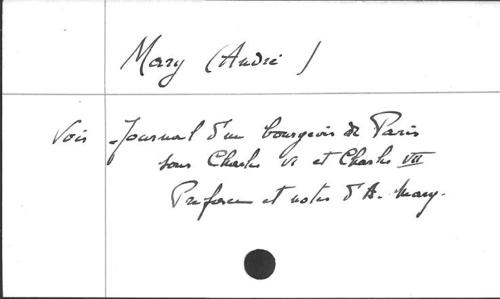 Mary (André)
Vois Journal d'un bourgeois de Paris
sous Charles VI et Charles VII
Préface et notes d'A. Mary.